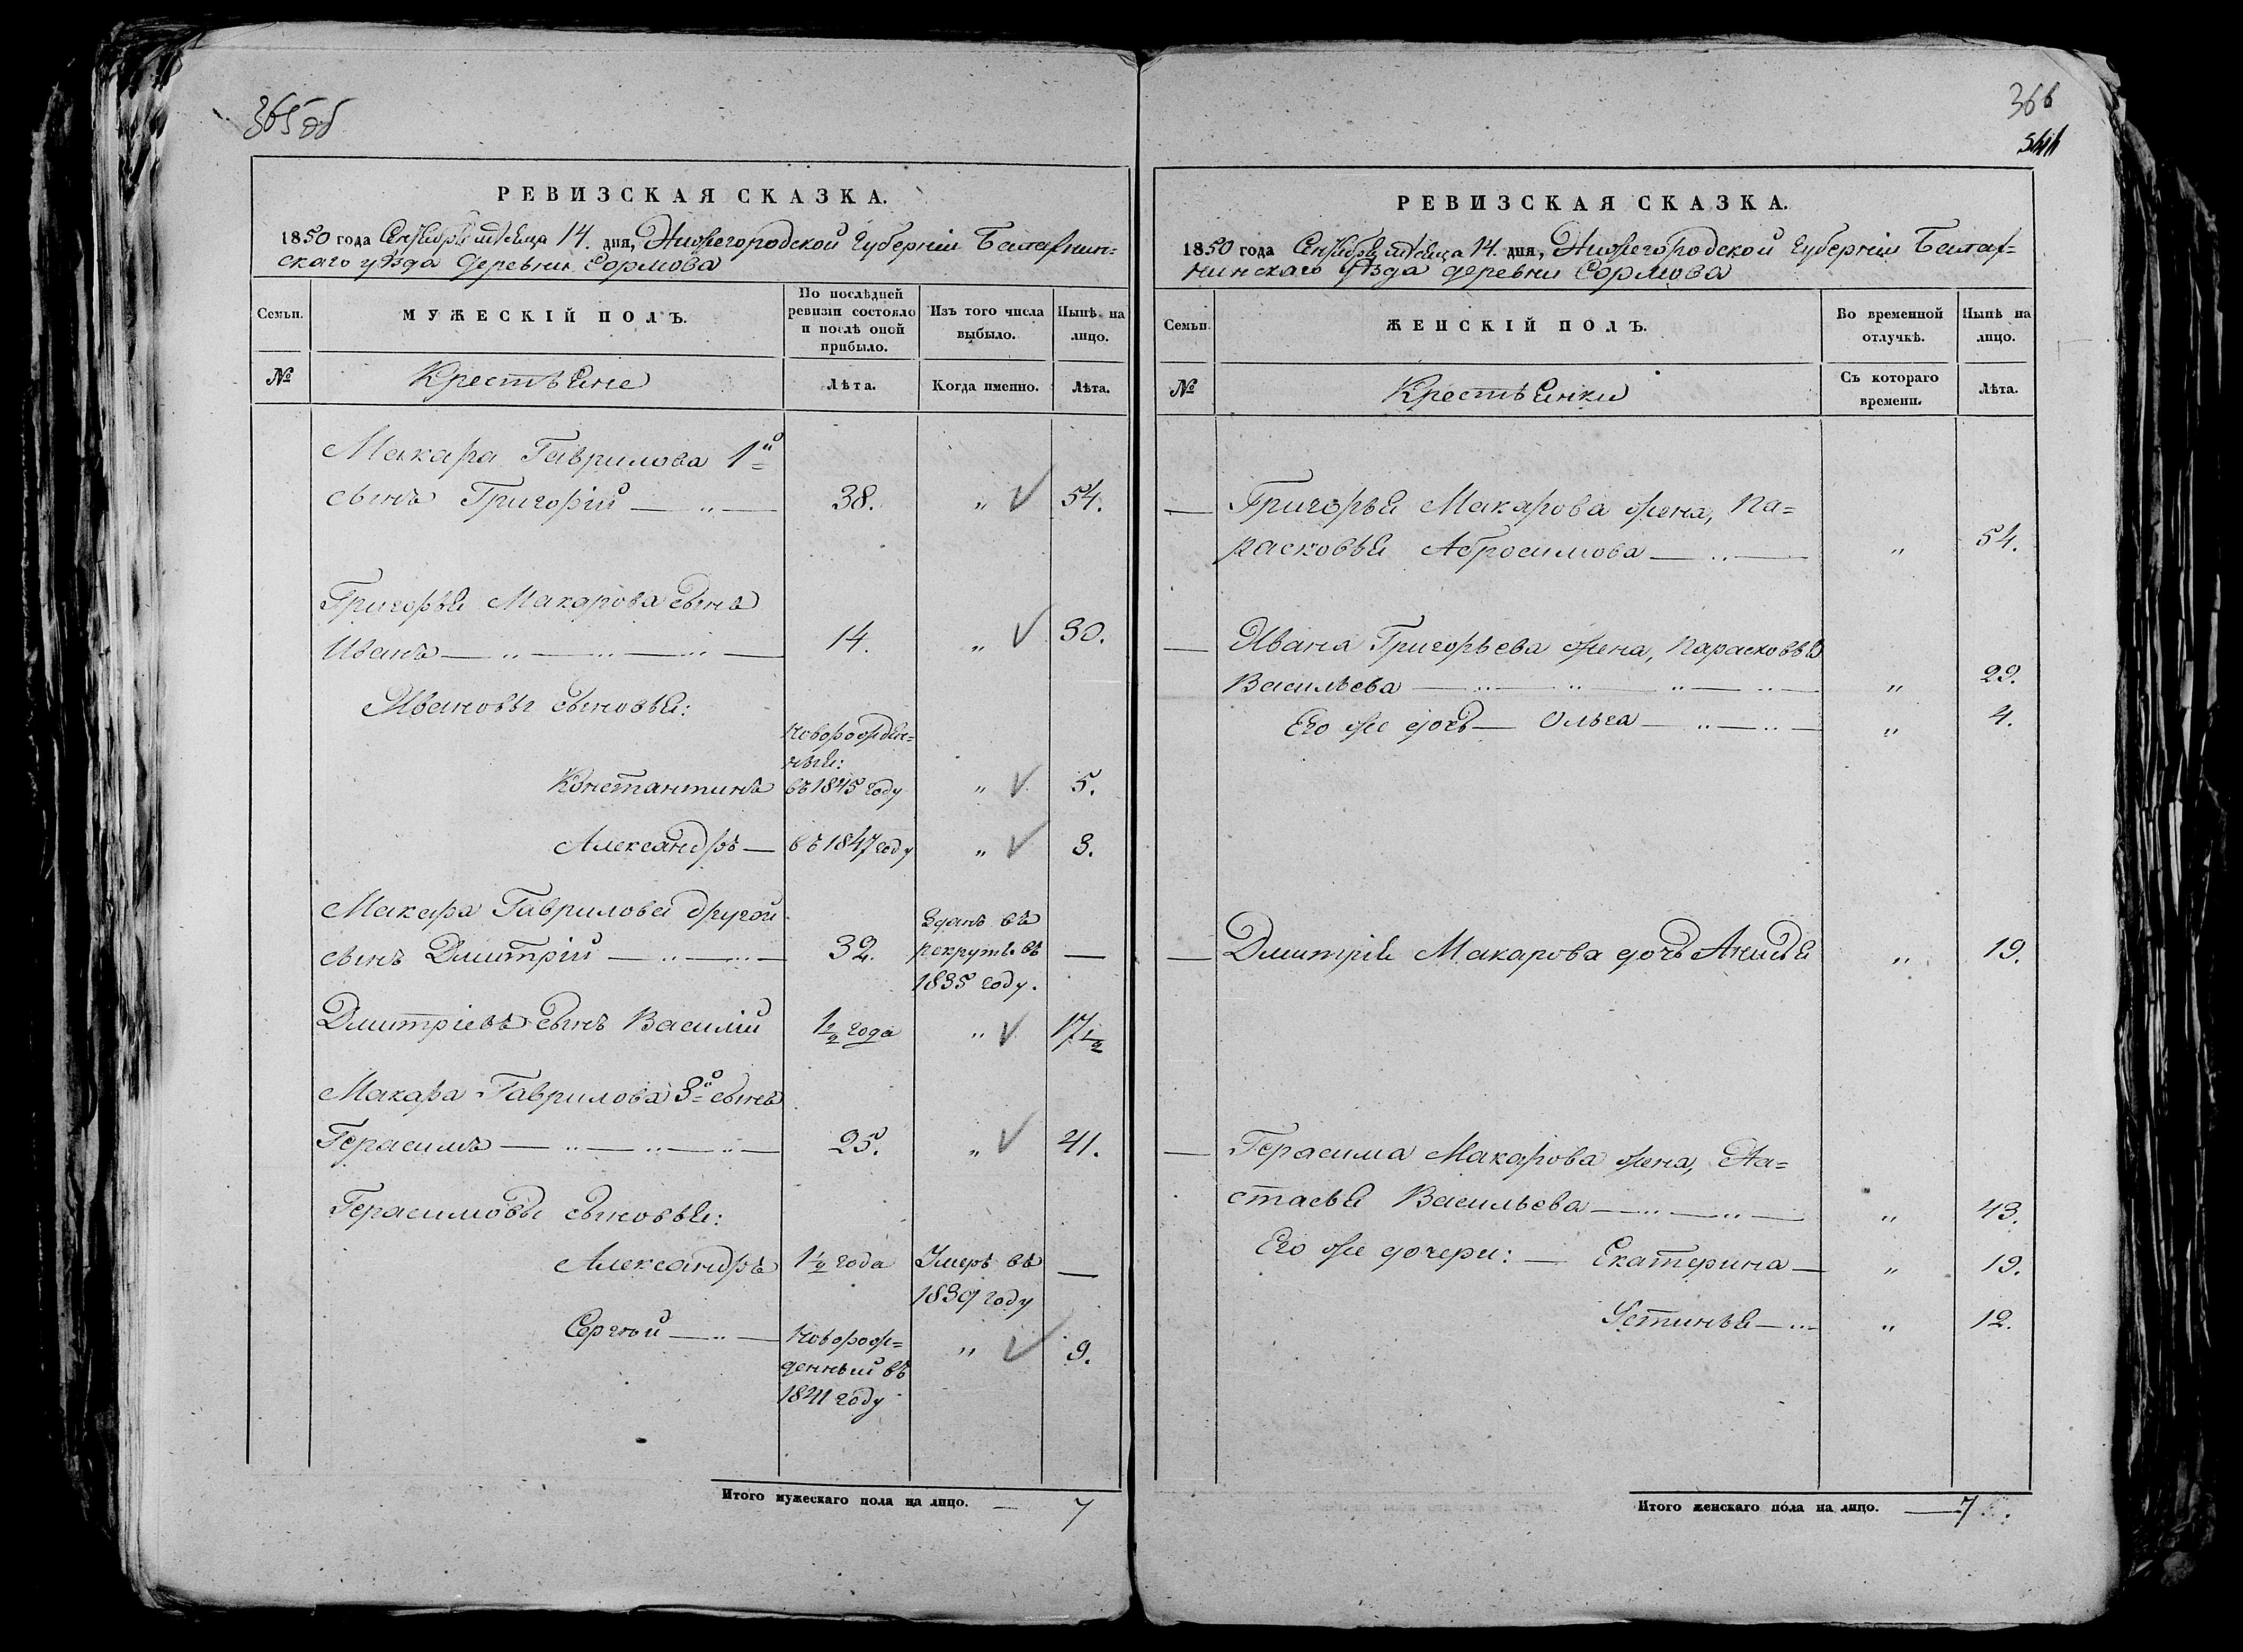 365 об
РЕВИЗСКАЯ СКАЗКА.
1850 года Сентября мѣсяца 14. дня, Нижегородской Губерніи Балахнин-
скаго уѣзда деревни Сормова
Семьи.
МУЖЕСКІЙ ПОЛЪ.
По послѣдней
ревизіи состояло
и послѣ оной
прибыло.
Изъ того числа
выбыло.
Нынѣ на
лицо.
№
Крестьяне
Лѣта.
Когда именно.
Лѣта.
Макара Гаврилова 1й
сынъ Григорій — „ — 38. „ 54.
Григорья Макарова сынъ
Иванъ — „ — „ — „ — 14. „ 30.
Ивановы сыновья:
новорожден-
ныя:
Константинъ въ 1845 году „ 5.
Александръ — въ 1847 году „ 3.
Макара Гаврилова другой
сынъ Дмитрій — „ — „ — 32. Зданъ въ
рекруты въ —
1835 году.
Дмитріевъ сынъ Василій 1½ года „ 17½
Макара Гаврилова 3й сынъ
Герасимъ — „ — „ — „ — 25. „ 41.
Герасимовы сыновья:
Александръ 1½ года Умеръ въ —
1839 году
Сергѣй — „ — новорож-
денный въ „ 9.
1841 году
Итого мужескаго пола на лицо. — 7
366
РЕВИЗСКАЯ СКАЗКА.
1850 года Сентября мѣсяца 14. дня, Нижегородской Губерніи Балах-
нинскаго уѣзда деревни Сормова
Семьи.
ЖЕНСКІЙ ПОЛЪ.
Во временной
отлучкѣ.
Нынѣ на
лицо.
№
Крестьянки
Съ котораго
времени.
Лѣта.
— Григорья Макарова жена, Па-
расковья Абросимова — „ — „ 54.
— Ивана Григорьева жена, Парасковья
Васильева — „ — „ — „ — „ — „ 29.
Его же дочь — Ольга — „ — „ — „ 4.
— Дмитрія Макарова дочь Анисья „ 19.
— Герасима Макарова жена, На-
стасья Васильева — „ — „ — „ 43.
Его же дочери: — Екатерина — „ 19.
Устинья — „ „ 12.
Итого женскаго пола на лицо. — 7.